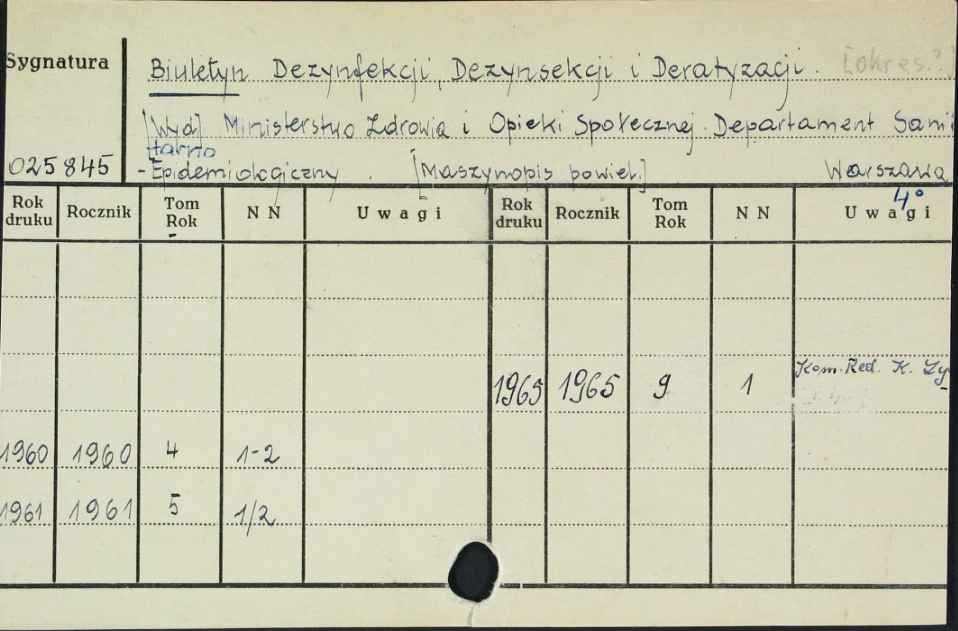 Sygnatura
Biuletyn Dezynfekcji, Dezynsekcji i Deratyzacji. [okres.?]
[Wyd] Ministerstwo Zdrowia i Opieki Społecznej. Departament Sani
tarno
025845 -Epidemiologiczny. [Maszynopis powiel.] Warszawa
4°
Rok druku Rocznik Tom Rok NN Uwagi Rok druku Rocznik Tom Rok NN Uwagi
1965 1965 9 1 Kom. Red. K. Ży-
1960 1960 4 1-2
1961 1961 5 1/2